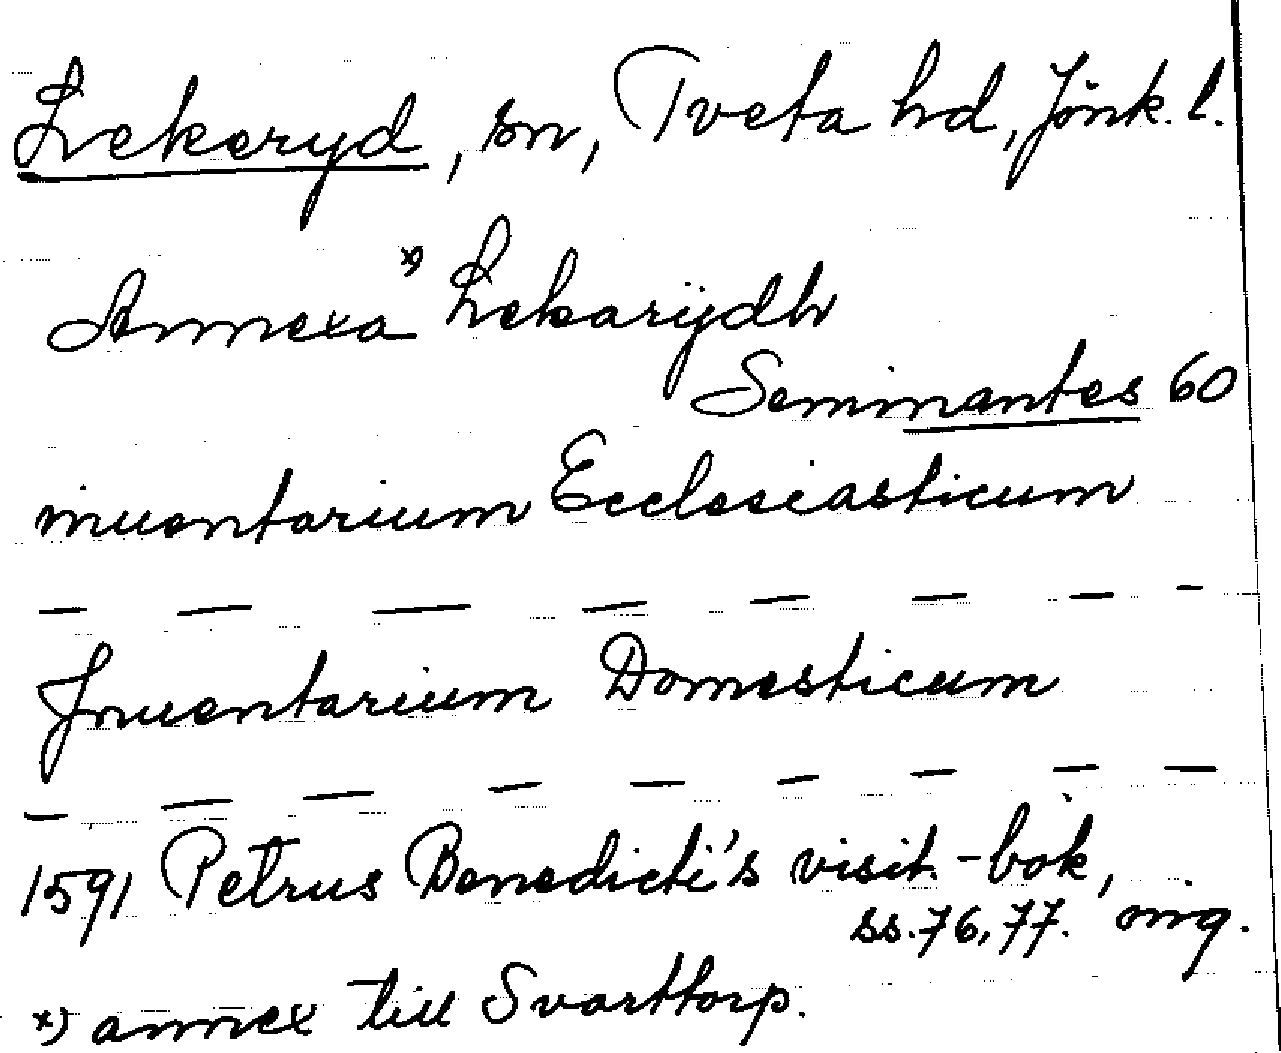 Lekeryd, sn, Tveta hd, Jönk. l.
Annexa *) Lekarÿdh
Seminantes 60
inuentarium Ecclesiasticum
— — — — — — — —
Jnuentarium Domesticum
— — — — — — — — —
1591 Petrus Benedicti's visit.-bok,
ss. 76, 77. orig.
*) annex till Svarttorp.